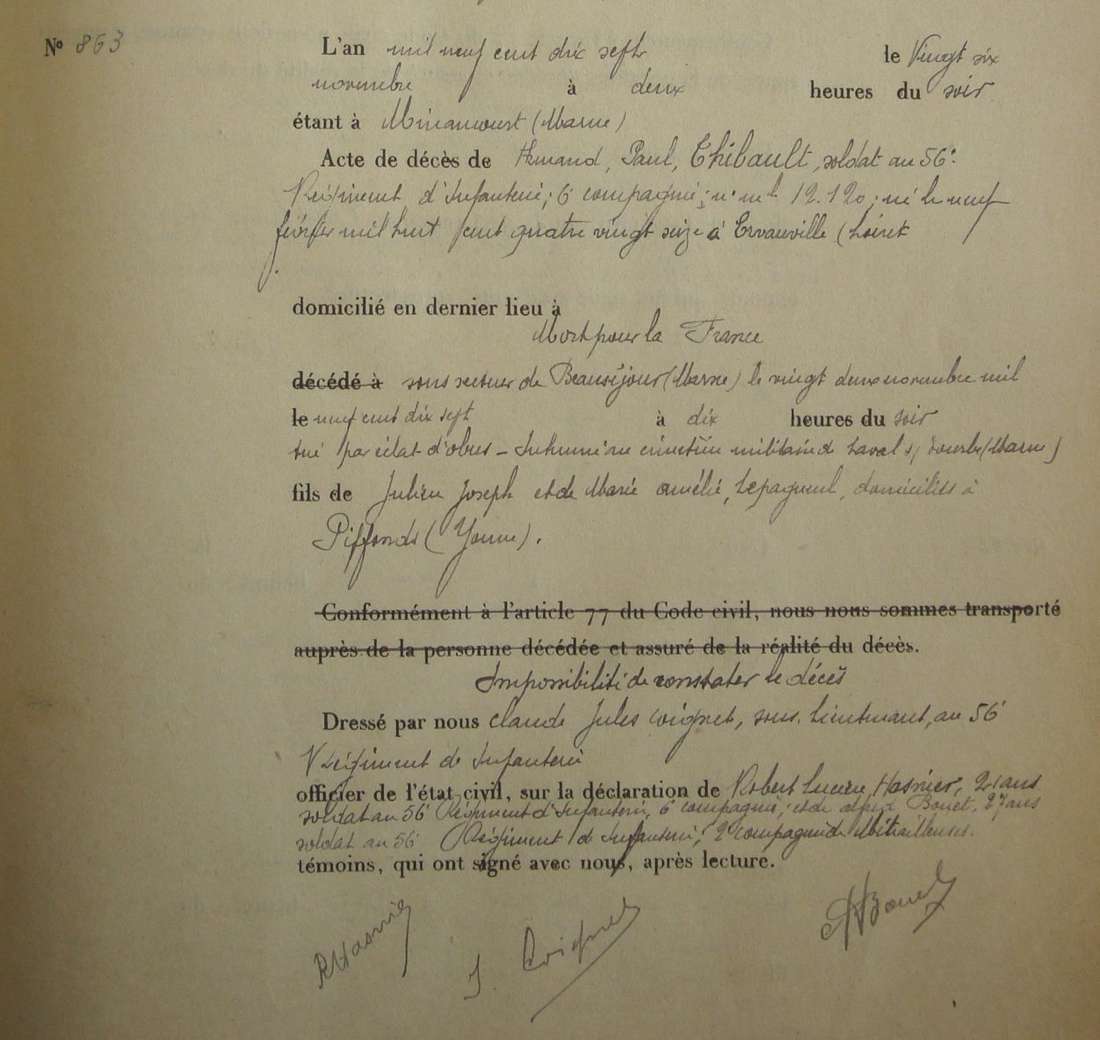 N° 863
L'an mil neuf cent dix sept le Vingt six
novembre à deux heures du soir
étant à Minaucourt (Marne)
Acte de décès de Armand, Paul, Thibault, soldat au 56e
Régiment d'Infanterie; 6e compagnie; n° ml 12.120; né le neuf
février mil huit cent quatre vingt seize à Ervauville (Loiret
domicilié en dernier lieu à
Mort pour la France
décédé à sous secteur de Beauséjour (Marne) le vingt deux novembre mil
le neuf cent dix sept à dix heures du soir
tué par éclat d'obus - Inhumé au cimetière militaire de Laval s/ Tourbe (Marne)
fils de Julien Joseph et de Marie Amélie, domiciliés à
Piffonds (Yonne).
Conformément à l'article 77 du Code civil, nous nous sommes transporté
auprès de la personne décédée et assuré de la réalité du décès.
Impossibilité de constater le décès
Dressé par nous Claude Jules Coignet, sous lieutenant, au 56e
Régiment de Infanterie
officier de l'état civil, sur la déclaration de Robert Lucien Hasnier, 21 ans
soldat au 56e Régiment d'Infanterie, 6e compagnie; et de Bouet, 27 ans
soldat au 56e Régiment d'Infanterie; 2e compagnie de Mitrailleuses.
témoins, qui ont signé avec nous, après lecture.
R Hasnier J. Coignet Bouet